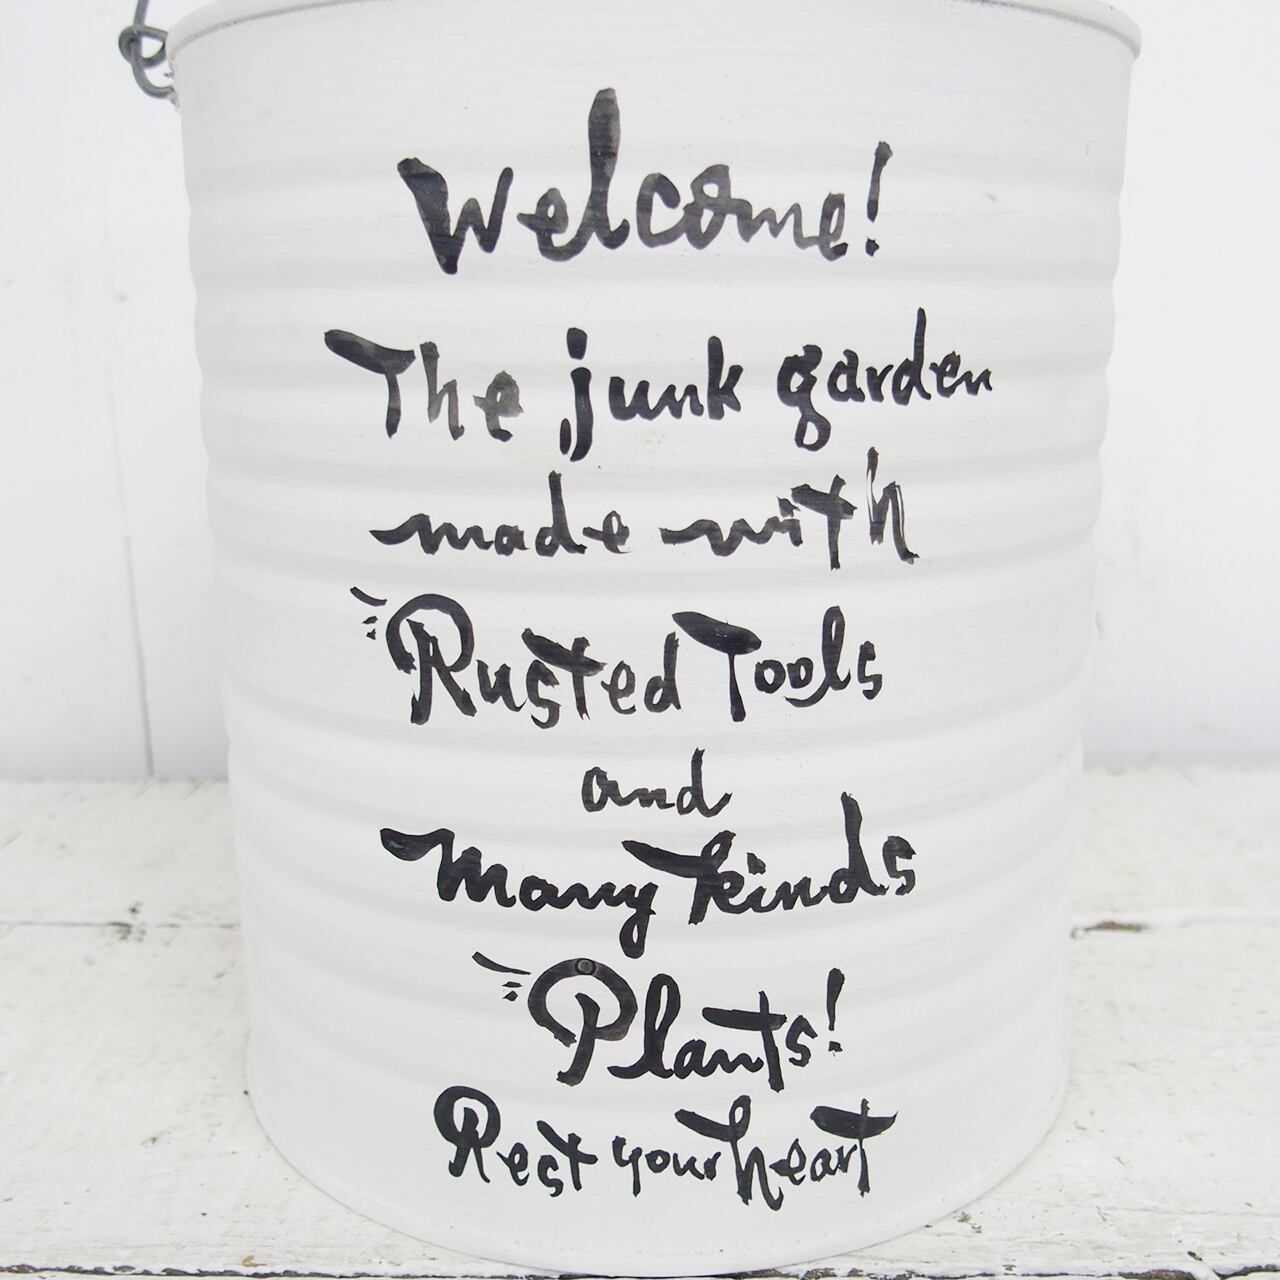 Welcome!
The junk garden
made with
Rusted Tools
and
Many kinds
Plants!
Rest your heart